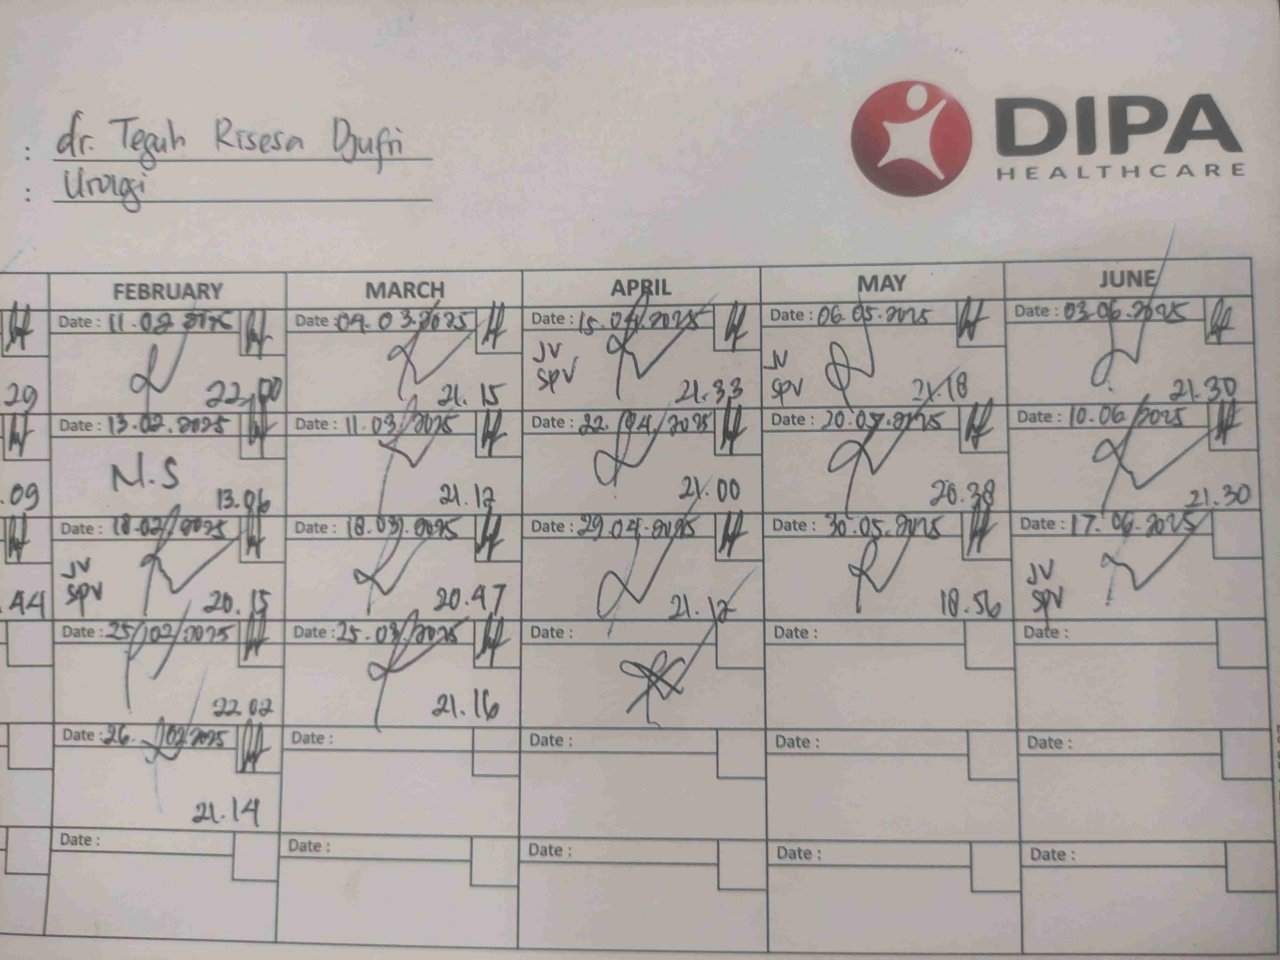 : dr. Teguh Risesa Djufri
: Urologi
DIPA
HEALTHCARE
FEBRUARY MARCH APRIL MAY JUNE
Date : 11.02.2025 Date : 04.03.2025 Date : 15.04.2025 Date : 06.05.2025 Date : 03.06.2025
JV JV
SPV SPV
29 22.00 21.15 21.33 21.18 21.30
Date : 13.02.2025 Date : 11.03.2025 Date : 22.04.2025 Date : 20.05.2025 Date : 10.06.2025
N.S
.09 13.06 21.12 21.00 20.38 21.30
Date : 18.02.2025 Date : 18.03.2025 Date : 29.04.2025 Date : 30.05.2025 Date : 17.06.2025
JV JV
SPV SPV
44 20.15 20.47 21.12 18.56
Date : 25/02/2025 Date : 25.03.2025 Date : Date : Date :
22.02 21.16
Date : 26.02.2025 Date : Date : Date : Date :
21.14
Date : Date : Date : Date : Date :